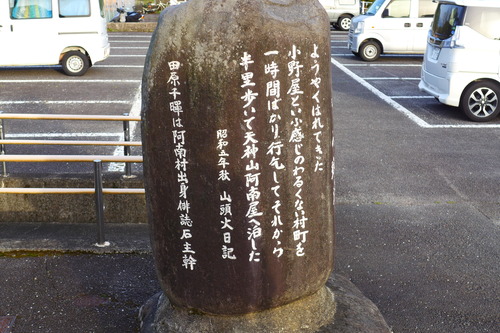 ようやくはれてきた
小野屋といふ感じのわるくない村町を
一時間ばかり行乞してそれから
半里歩いて天神山阿南屋へ泊した
昭和五年秋 山頭火日記
田原千暉は阿南村出身俳誌石主幹